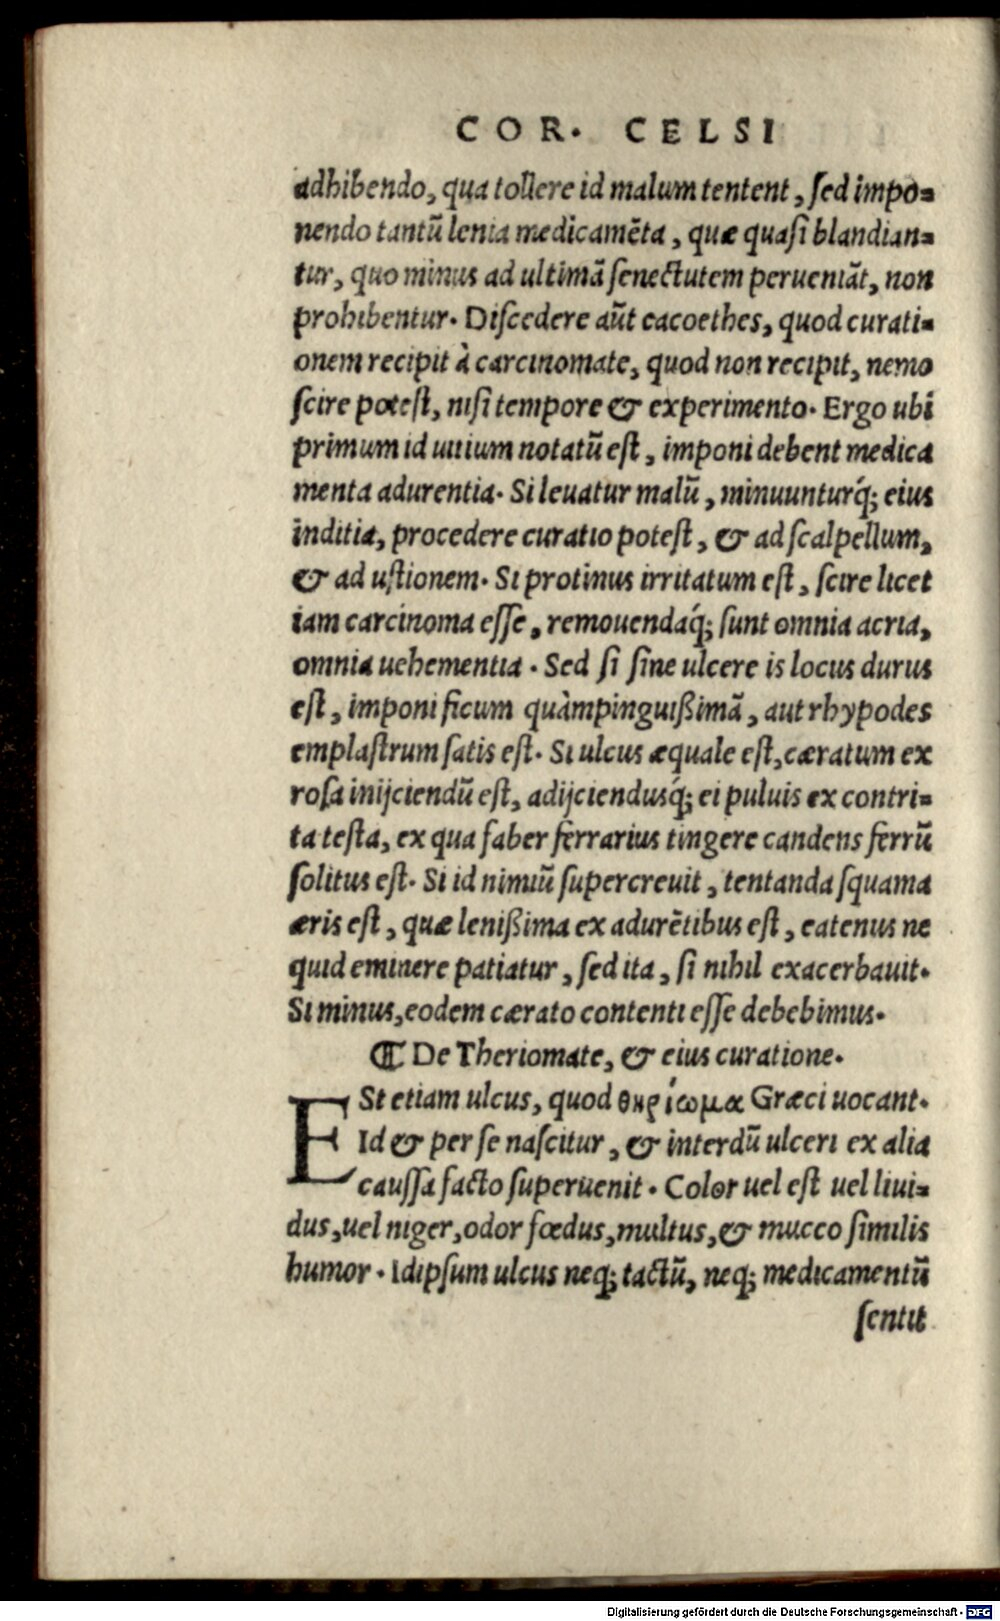 COR. CELSI
adhibendo, qua tollere id malum tentent, ſed impo=
nendo tantū lenia medicamēta, quæ quaſi blandian=
tur, quo minus ad ultimā ſenectutem perueniāt, non
prohibentur. Diſcedere aūt cacoethes, quod curati=
onem recipit à carcinomate, quod non recipit, nemo
ſcire poteſt, niſi tempore & experimento. Ergo ubi
primum id uitium notatū eſt, imponi debent medica
menta adurentia. Si leuatur malū, minuunturq́; eius
inditia, procedere curatio poteſt, & ad ſcalpellum,
& ad uſtionem. Si protinus irritatum eſt, ſcire licet
iam carcinoma eſſe, remouendaq́; ſunt omnia acria,
omnia uehementia. Sed ſi ſine ulcere is locus durus
eſt, imponi ficum quàmpinguißimā, aut rhypodes
emplaſtrum ſatis eſt. Si ulcus æquale eſt, cæratum ex
roſa inijciendū eſt, adijciendusq́; ei puluis ex contri=
ta teſta, ex qua faber ferrarius tingere candens ferrū
ſolitus eſt. Si id nimiū ſupercreuit, tentanda ſquama
æris eſt, quæ lenißima ex adurētibus eſt, eatenus ne
quid eminere patiatur, ſed ita, ſi nihil exacerbauit.
Si minus, eodem cærato contenti eſſe debebimus.
¶ De Theriomate, & eius curatione.
ESt etiam ulcus, quod θηρίωμα Græci uocant.
Id & per ſe naſcitur, & interdū ulceri ex alia
cauſſa facto ſuperuenit. Color uel eſt uel liui=
dus, uel niger, odor fœdus, multus, & mucco ſimilis
humor. Idipſum ulcus neq; tactū, neq; medicamentū
ſentit
Digitalisierung gefördert durch die Deutsche Forschungsgemeinschaft - DFG